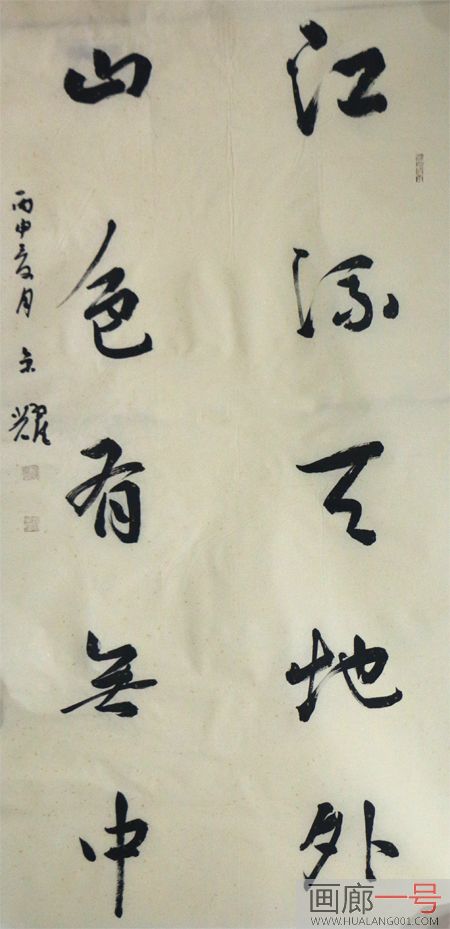 江流天地外
山色有无中
丙申夏月
画廊一号
WWW.HUALANG001.COM